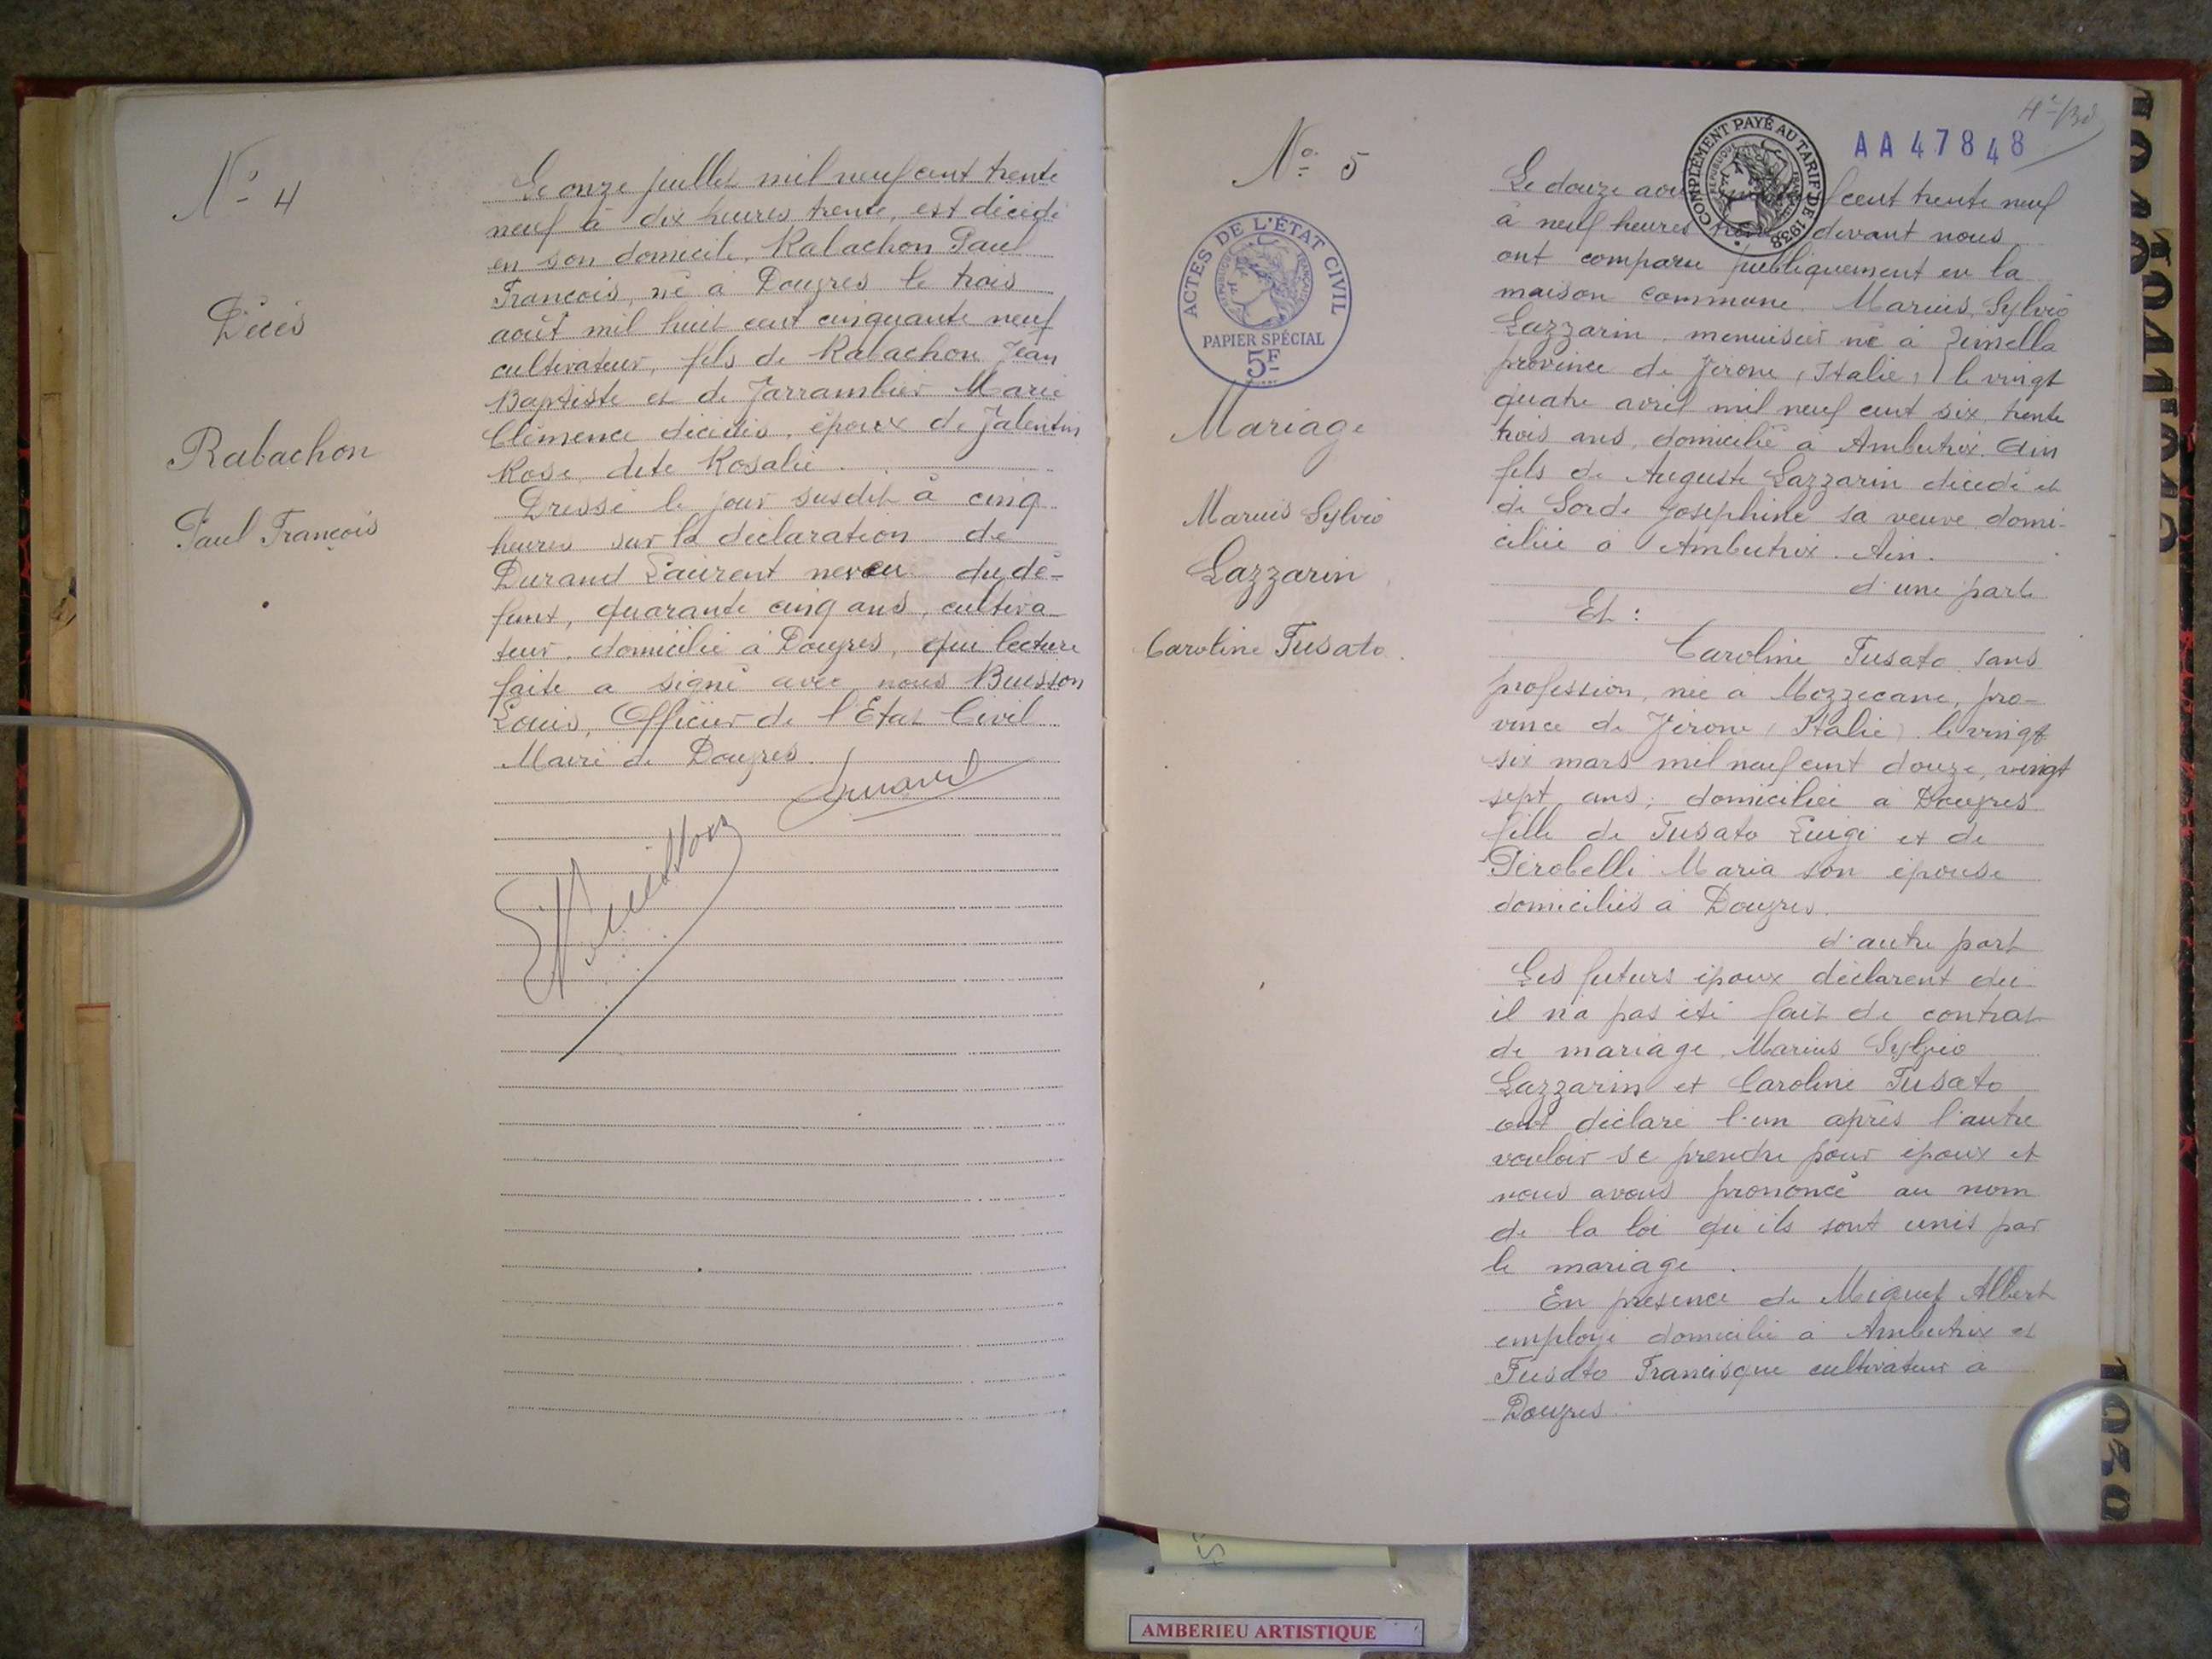 N° 4
Décès
Rabachon
Paul François
Le onze juillet mil neuf cent trente
neuf à dix heures trente, est décédé
en son domicile, Rabachon Paul
François, né à Douvres le trois
août mil huit cent cinquante neuf
cultivateur, fils de Rabachon Jean
Baptiste et de Jarrambier Marie
Clémence décédés, époux de Valentin
Rose, dite Rosalie.
Dressé le jour susdit à cinq
heures sur la déclaration de
Durand Laurent neveu du dé-
funt, quarante cinq ans, cultiva-
teur, domicilié à Douvres, qui lecture
faite a signé avec nous Buisson
Louis, Officier de l'Etat Civil
Maire de Douvres.
Durand
Buisson
N° 5
ACTES DE L'ÉTAT CIVIL
RÉPUBLIQUE FRANÇAISE
PAPIER SPÉCIAL
5F
Mariage
Marius Sylvio
Lazzarin
Caroline Fusato.
COMPLÉMENT PAYÉ AU TARIF DE 1938
RÉPUBLIQUE FRANÇAISE
AA 47848
Le douze août cent trente neuf
à neuf heures devant nous
ont comparu publiquement en la
maison commune. Marius Sylvio
Lazzarin, menuisier né à Zimella
province de Vérone (Italie) le vingt
quatre avril mil neuf cent six, trente
trois ans, domicilié à Ambutrix. Ain
fils de Auguste Lazzarin décédé et
de Sorde Joséphine sa veuve domi-
ciliée à Ambutrix. Ain.
d'une part
Et :
Caroline Fusato sans
profession, née à Mozzecane, pro-
vince de Vérone (Italie) le vingt
six mars mil neuf cent douze, vingt
sept ans, domiciliée à Douvres
fille de Fusato Luigi et de
Pérobelli Maria son épouse
domiciliés à Douvres.
d'autre part
Les futurs époux déclarent qu'
il n'a pas été fait de contrat
de mariage. Marius Sylvio
Lazzarin et Caroline Fusato
ont déclaré l'un après l'autre
vouloir se prendre pour époux et
nous avons prononcé au nom
de la loi qu'ils sont unis par
le mariage.
En présence de Miguet Albert
employé domicilié à Ambutrix et
Fusato Francisque cultivateur à
Douvres.
AMBERIEU ARTISTIQUE